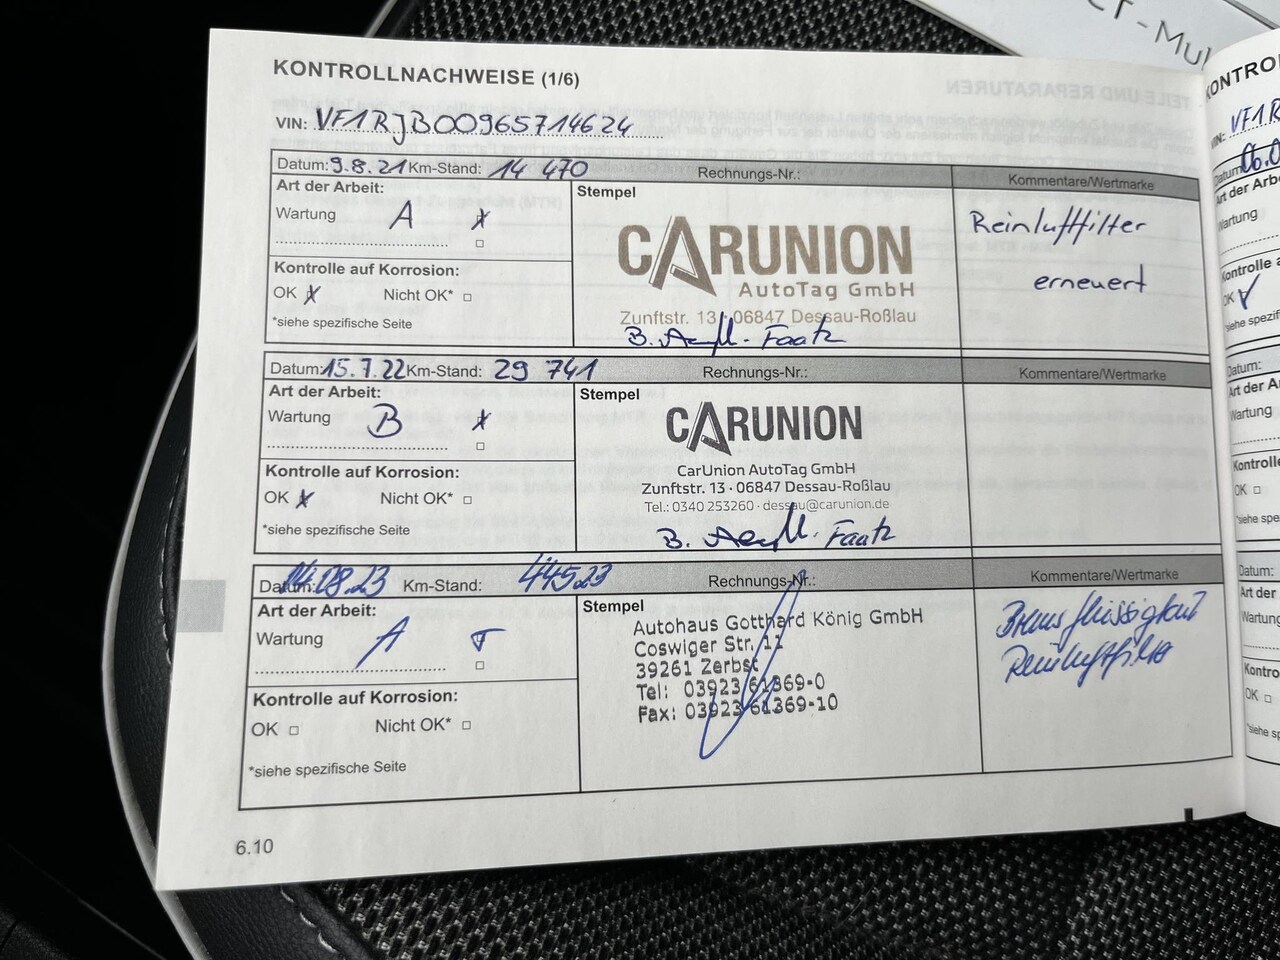 CT-Mul
KONTROLLNACHWEISE (1/6)
VIN: VF1RJB00965714624
Datum: 9.8.21 Km-Stand: 14 470 Rechnungs-Nr.: Kommentare/Wertmarke
Art der Arbeit: Stempel
Wartung A x
CARUNION
AutoTag GmbH
Zunftstr. 13 · 06847 Dessau-Roßlau
Reinluftfilter
erneuert
Kontrolle auf Korrosion:
OK x Nicht OK*
*siehe spezifische Seite
Datum: 15.7.22 Km-Stand: 29 741 Rechnungs-Nr.: Kommentare/Wertmarke
Art der Arbeit: Stempel
Wartung B x
CARUNION
CarUnion AutoTag GmbH
Zunftstr. 13 · 06847 Dessau-Roßlau
Tel.: 0340 253260 · dessau@carunion.de
Kontrolle auf Korrosion:
OK x Nicht OK*
*siehe spezifische Seite
Datum: 14.08.23 Km-Stand: 44523 Rechnungs-Nr.: Kommentare/Wertmarke
Art der Arbeit: Stempel
Wartung A
Autohaus Gotthard König GmbH
Coswiger Str. 11
39261 Zerbst
Tel: 03923 61369-0
Fax: 03923 61369-10
Bremsflüssigkeit
Reinluftfilter
Kontrolle auf Korrosion:
OK Nicht OK*
*siehe spezifische Seite
6.10
KONTRO
VIN: VF1R
Datum: 06.0
Art der Arbe
Wartung
Kontrolle a
OK
siehe spezif
Datum:
Art der A
Wartung
Kontroll
OK
*siehe spe
Datum:
Art der
Wartung
Kontro
OK
*siehe sp